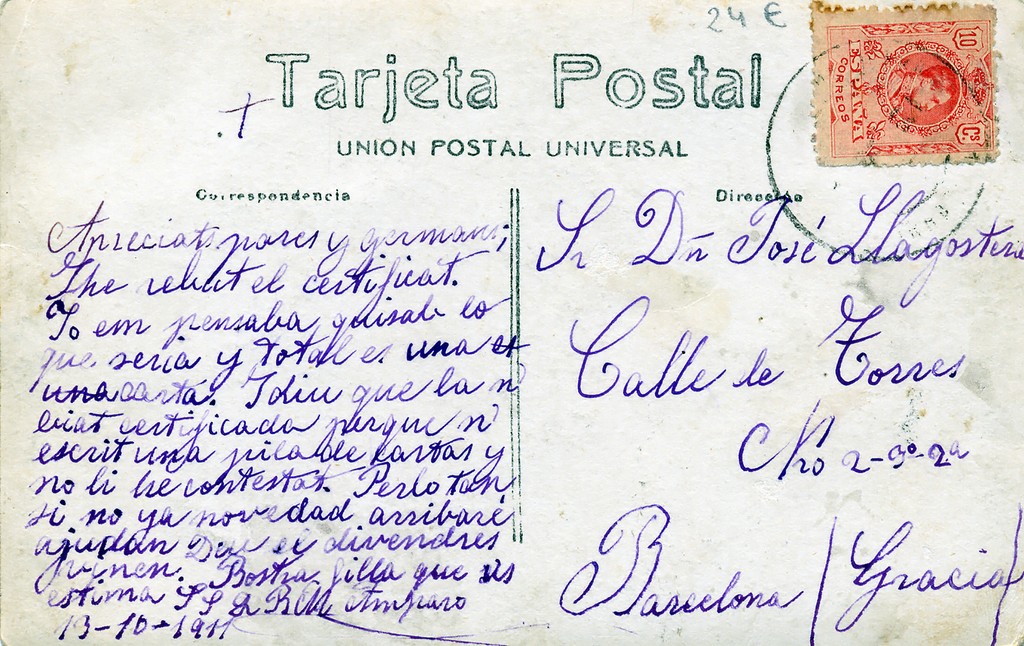 24 €
10 Cs
ESPAÑA
CORREOS
Tarjeta Postal
UNIÓN POSTAL UNIVERSAL
Correspondencia
Dirección
Apreciats pares y germans;
The rebut el certificat.
Jo em pensaba quisab lo
que seria y total es una et
una carta. Y diu que la n
biat certificada porque n'
escrit una pila de cartas y
no li he contestat. Perlotan
si no ya novedad arribaré
ajudan Deu el divendres
vinen. Bostra filla que us
estima S S Q B M Amparo
13-10-1911
Sr Dn José Llagostera
Calle de Torres
Nro 2-3º-2a
Barcelona (Gracia)